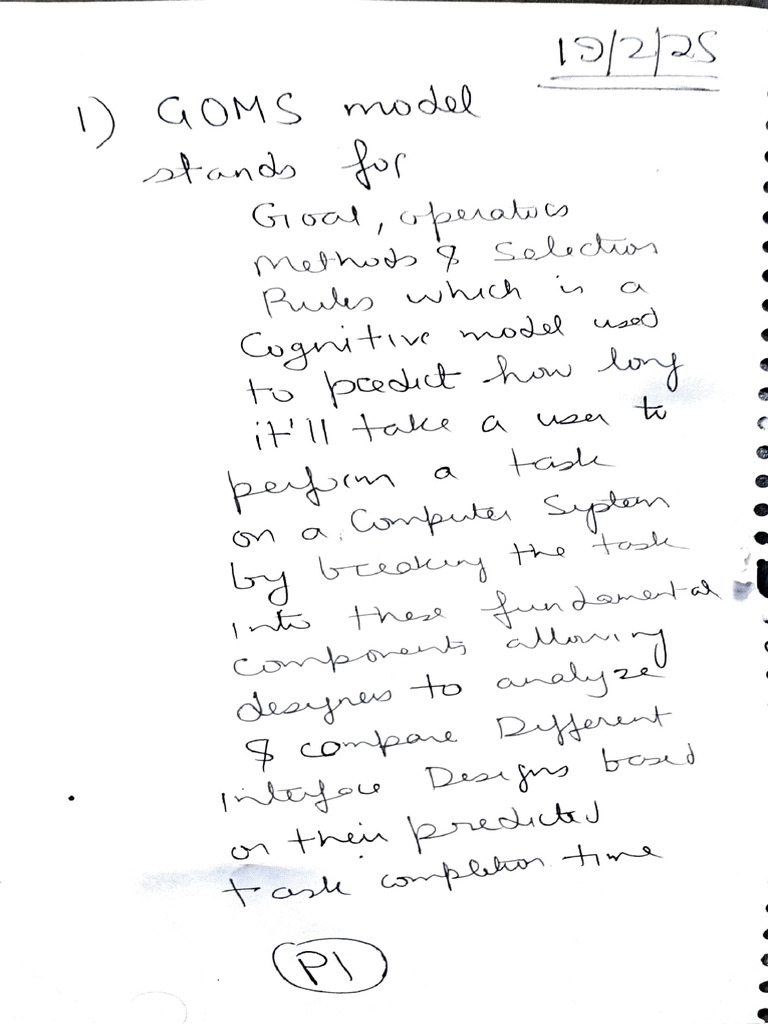 19/2/25
1) GOMS model
stands for
Goal, operators
Methods & Selection
Rules which is a
Cognitive model used
to predict how long
it'll take a user to
perform a task
on a Computer System
by breaking the task
into these fundamental
components allowing
designers to analyze
& compare Different
interface Designs based
on their predicted
task completion time
P1